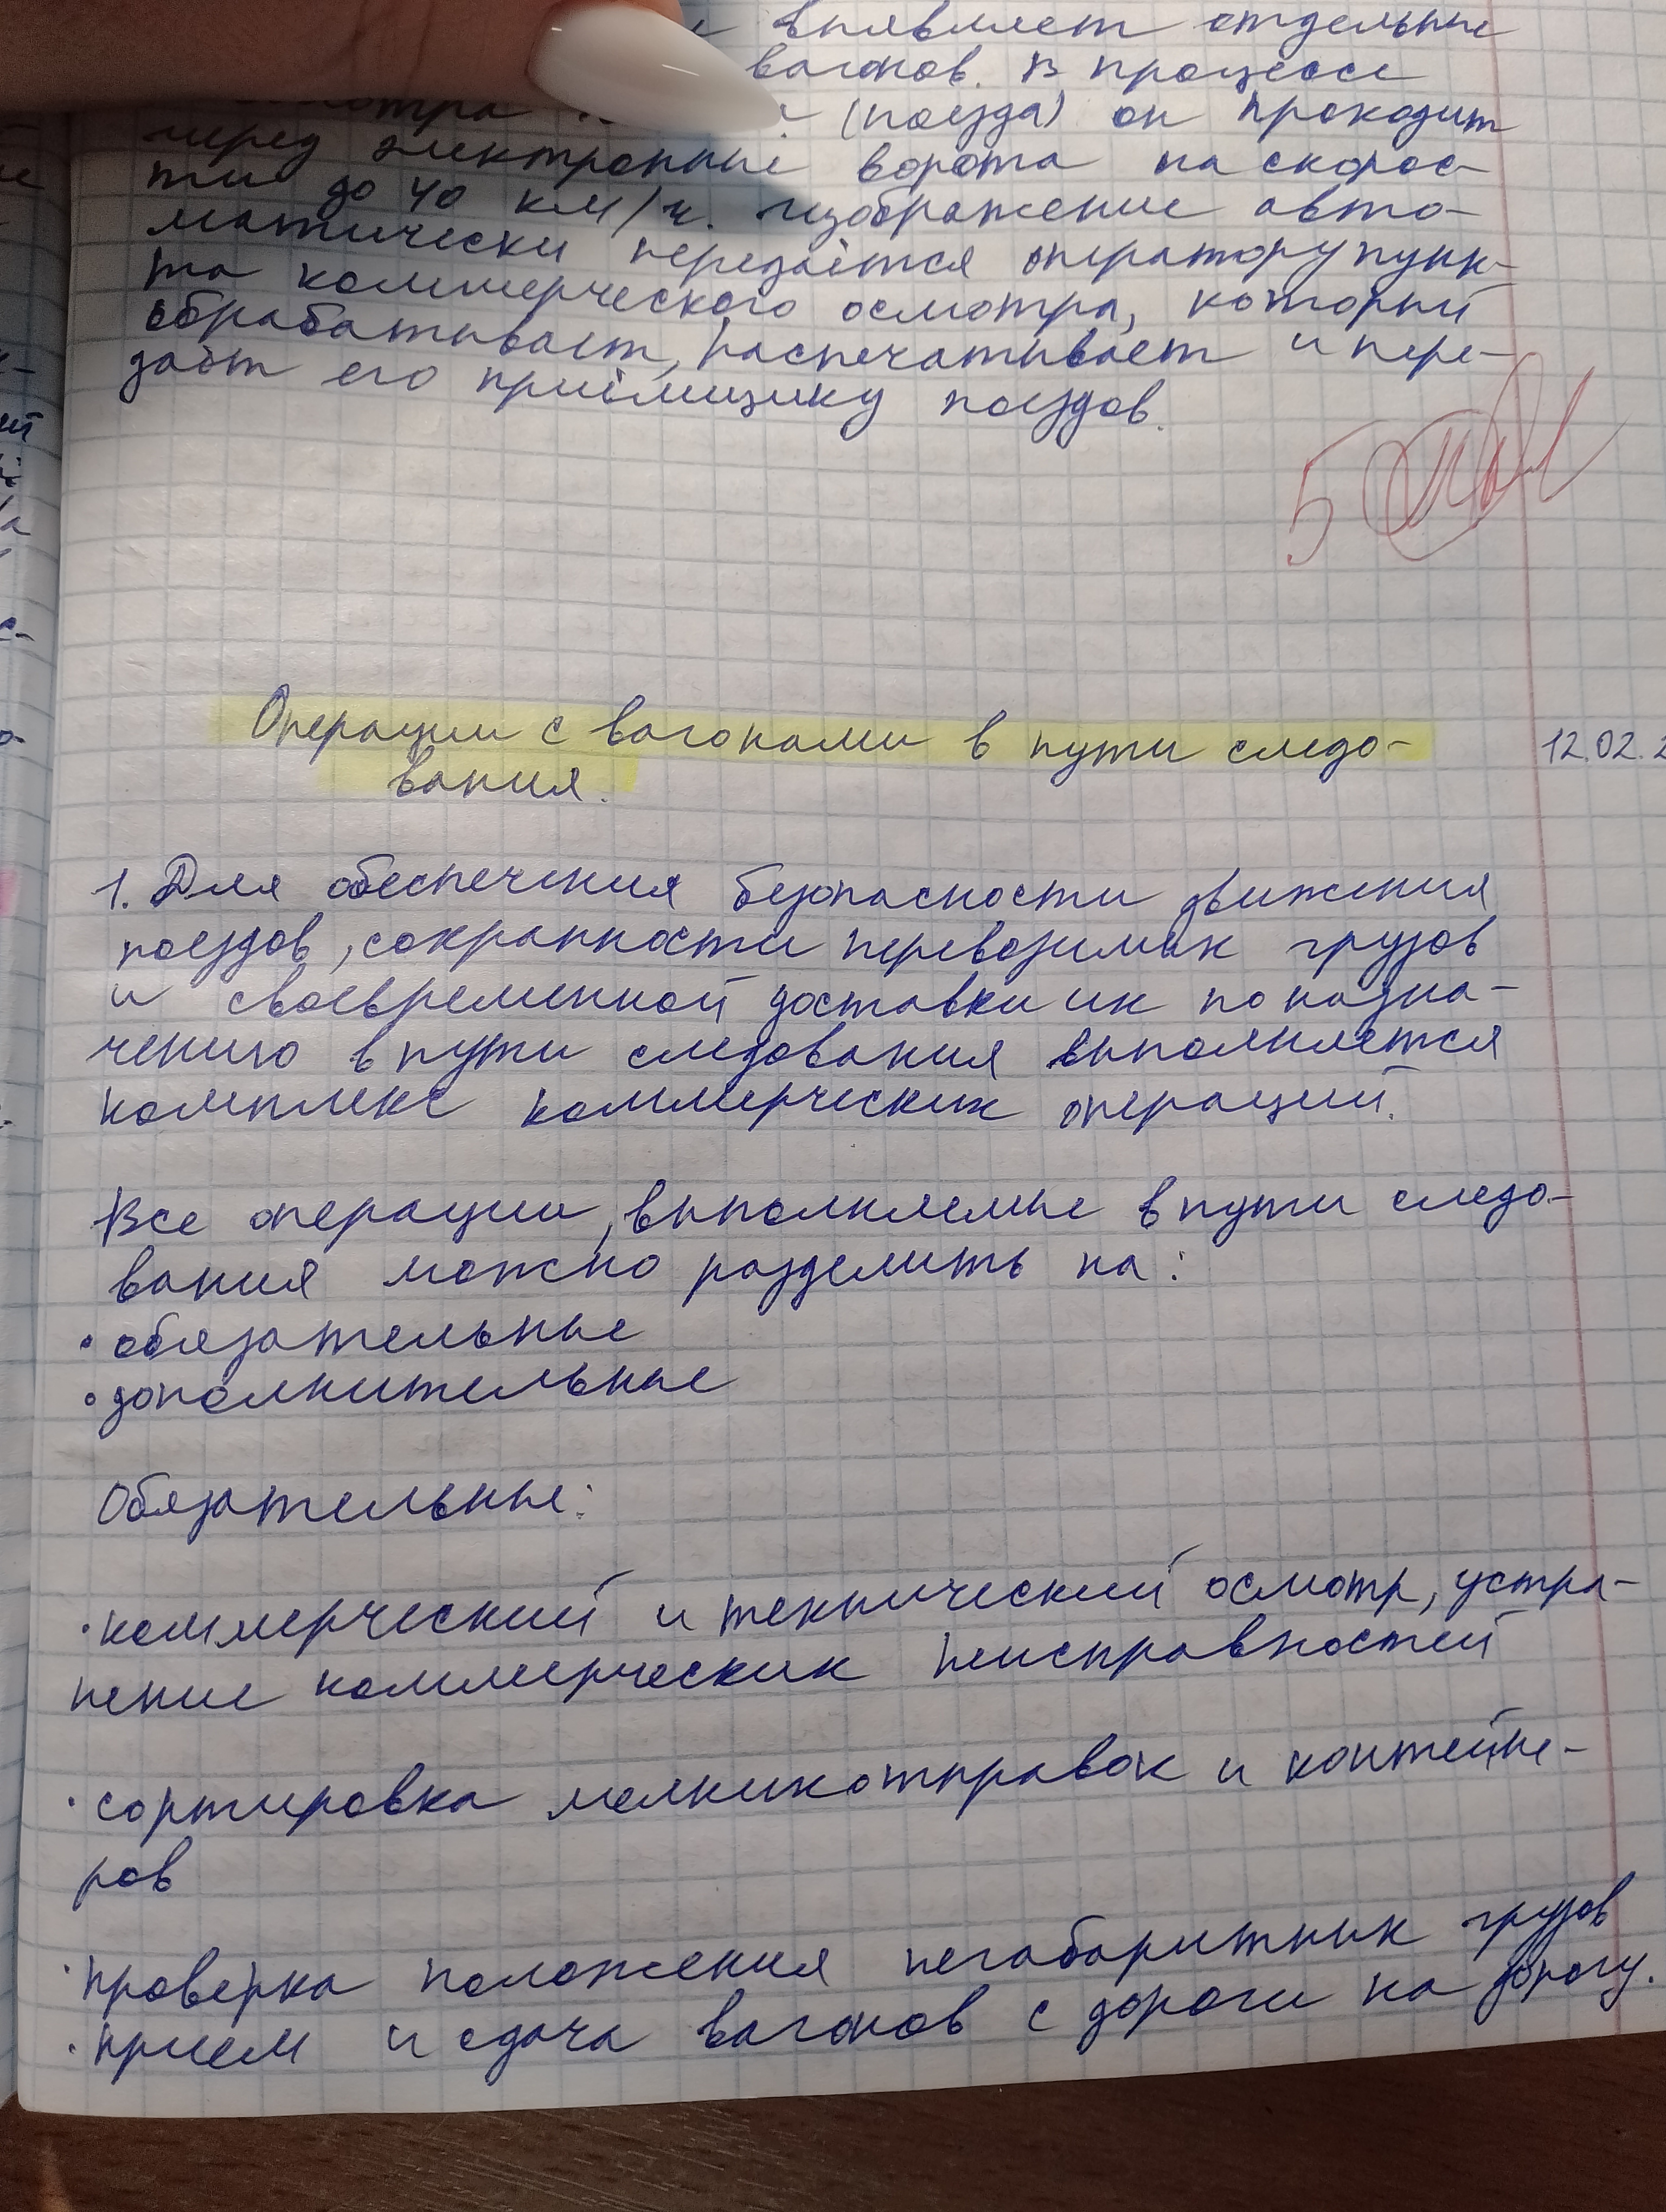 выявляет отдельные
вагонов. В процессе
(поезда) он проходит
через электронные ворота на скорос-
ти до 40 км/ч. Изображение авто-
матически передаётся оператору пунк-
та коммерческого осмотра, который
обрабатывает, распечатывает и пере-
даёт его приёмщику поездов.
5
Операции с вагонами в пути следо-
вания.
12.02.2
1. Для обеспечения безопасности движения
поездов, сохранности перевозимых грузов
и своевременной доставки их по назна-
чению в пути следования выполняется
комплекс коммерческих операций.
Все операции, выполняемые в пути следо-
вания можно разделить на:
• обязательные
• дополнительные
Обязательные:
• коммерческий и технический осмотр, устра-
нение коммерческих неисправностей
• сортировка мелких отправок и контейне-
ров
• проверка положения негабаритных грузов
• прием и сдача вагонов с дороги на дорогу.